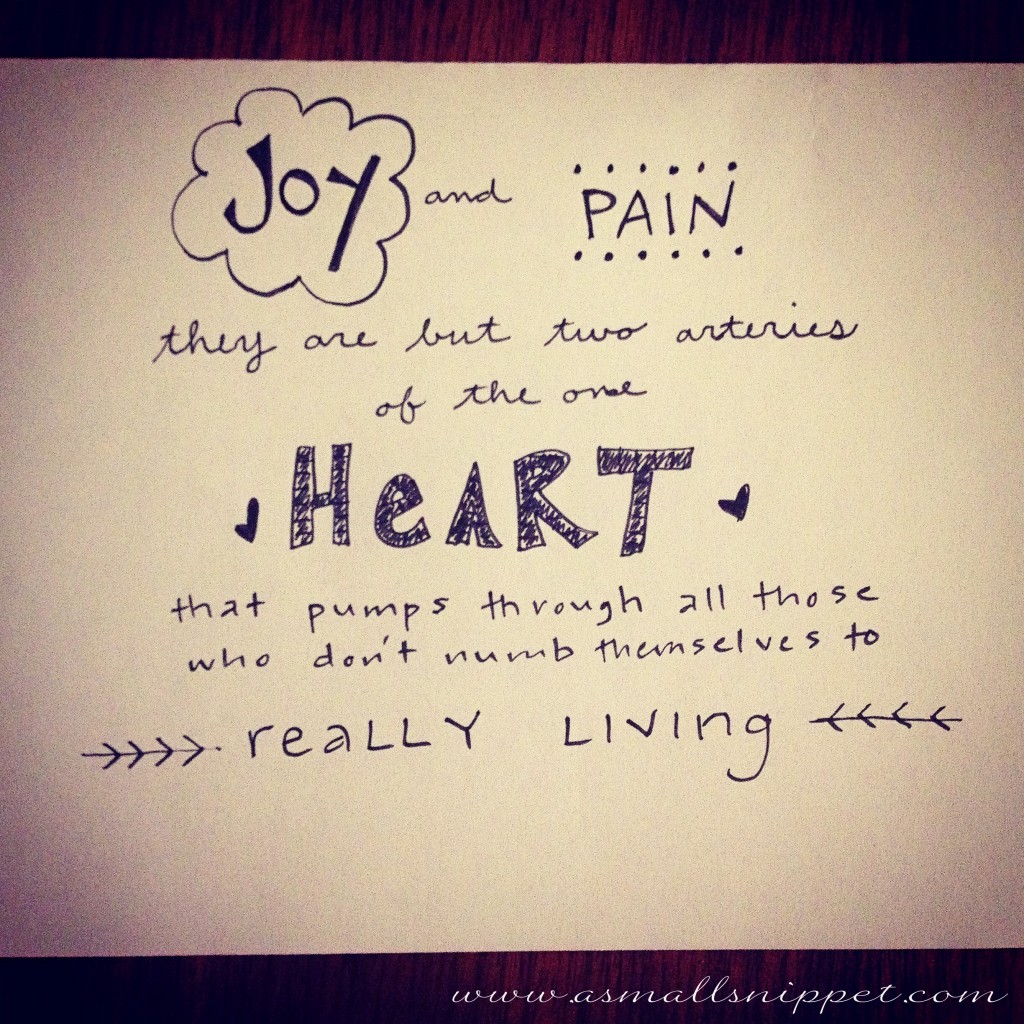 Joy and PAIN
they are but two arteries
of the one
HeART
that pumps through all those
who don't numb themselves to
reaLLY LIVing
www.asmallsnippet.com